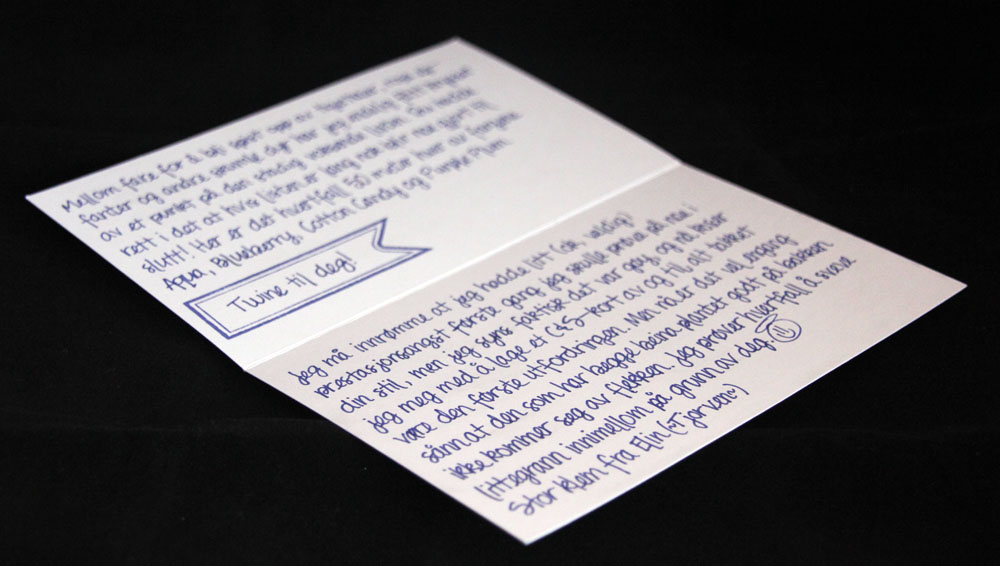 Mellom fare for å bli spist opp av
farter og andre søvnle dyr har jeg endelig fått
av et punkt på den stadig voksende listen. Du
rett i det at hvis listen er lang nok blir man gjort til
slutt! Her er det hvertfall 30 meter hver av fargene
Aqua, Blueberry, Cotton Candy og Purple Plum
Twine til deg!
Jeg må innrømme at jeg hadde litt (ok, veldig)
prestasjonsangst første gang jeg skulle prøve på noe i
din stil, men jeg syns faktisk det var gøy, og nå koser
jeg meg med å lage et C&S-kort av og til, alt takket
være den første utfordringen. Men nå er det vel engang
sånn at den som har begge beina plantet godt på bakken
ikke kommer seg av flekken. Jeg prøver hvertfall å sveve
littegrann innimellom på grunn av deg
Stor klem fra Elin (~Tjorven~)